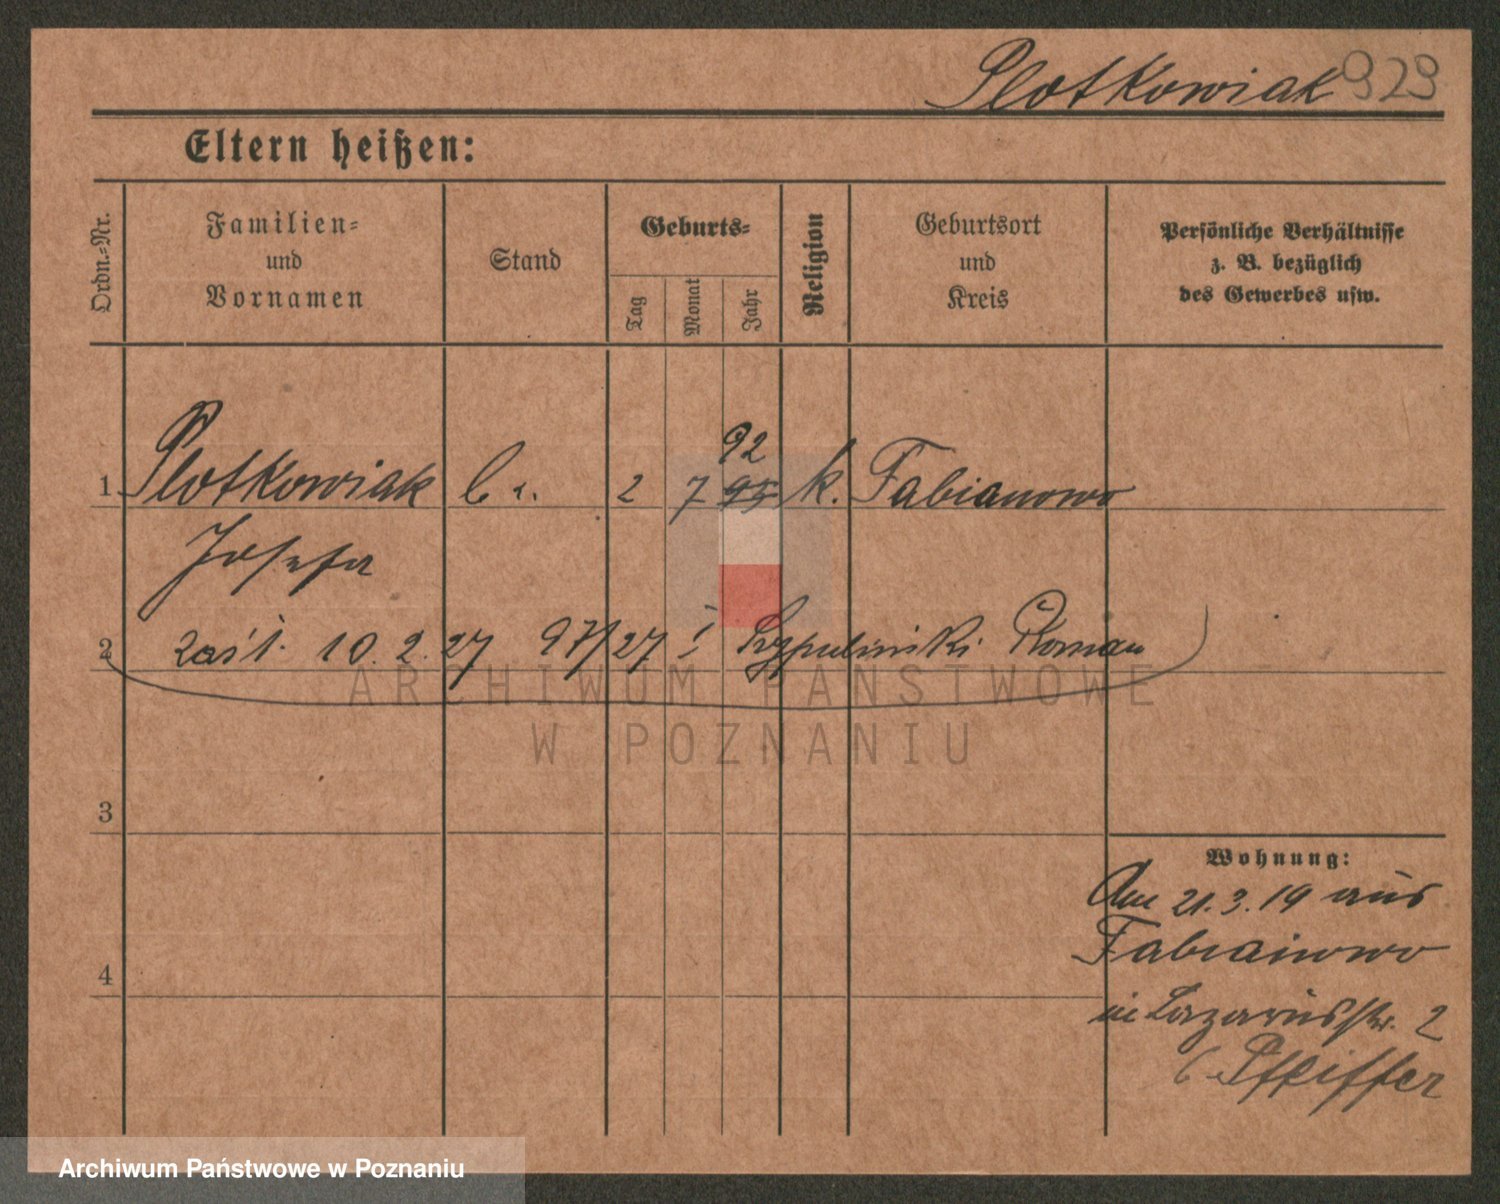 Plotkowiak 929
Eltern heißen:
Ordn.-Nr.
Familien-
und
Vornamen
Stand
Geburts-
Tag
Monat
Jahr
Religion
Geburtsort
und
Kreis
Persönliche Verhältnisse
z. B. bezüglich
des Gewerbes usw.
92
1 Plotkowiak 2 7 95 k. Fabianowo
Josefa
2 zaśl. 10. 2. 27 97/27 Roman
3
4
Wohnung:
Am 21. 3. 19 aus
Fabianowo
in Lazarusstr. 2
b. Pfeiffer
ARCHIWUM PAŃSTWOWE
W POZNANIU
Archiwum Państwowe w Poznaniu